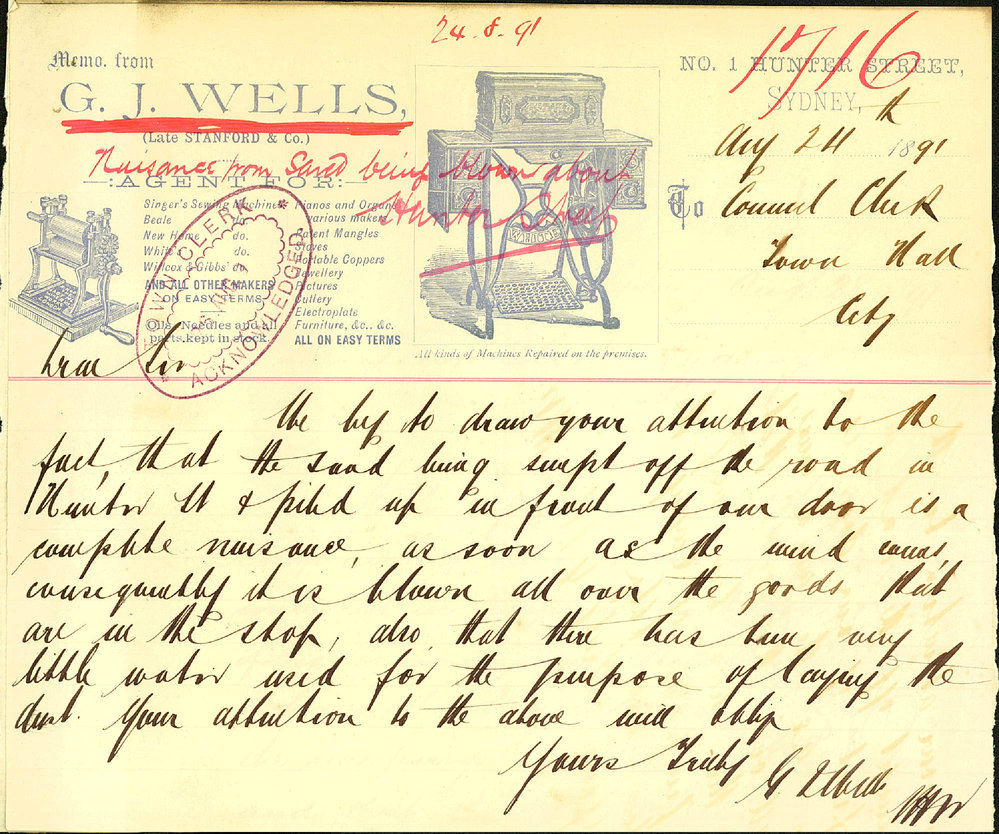 24.8.91
1716
Memo. from
G. J. WELLS,
(Late STANFORD & Co.)
NO. 1 HUNTER STREET,
SYDNEY,
Aug 24th 1891
To Council Clerk
Town Hall
City
Nuisance from Sand being blown about
Hunter Street
—:AGENT FOR:—
Singer's Sewing Machines
Beale do.
New Home do.
White do.
Willcox & Gibbs' do.
AND ALL OTHER MAKERS
ON EASY TERMS
Oils, Needles and all
parts kept in stock.
Pianos and Organs
various makers
Patent Mangles
Stoves
Portable Coppers
Jewellery
Pictures
Cutlery
Electroplate
Furniture, &c., &c.
ALL ON EASY TERMS
TOWN CLERK
ACKNOWLEDGED
All kinds of Machines Repaired on the premises.
Dear Sir
We beg to draw your attention to the
fact, that the sand being swept off the road in
Hunter St & piled up in front of our door is a
complete nuisance, as soon as the wind comes,
consequently it is blown all over the goods that
are in the shop, also that there has been very
little water used for the purpose of laying the
dust. Your attention to the above will oblige
Yours Truly
G J Wells